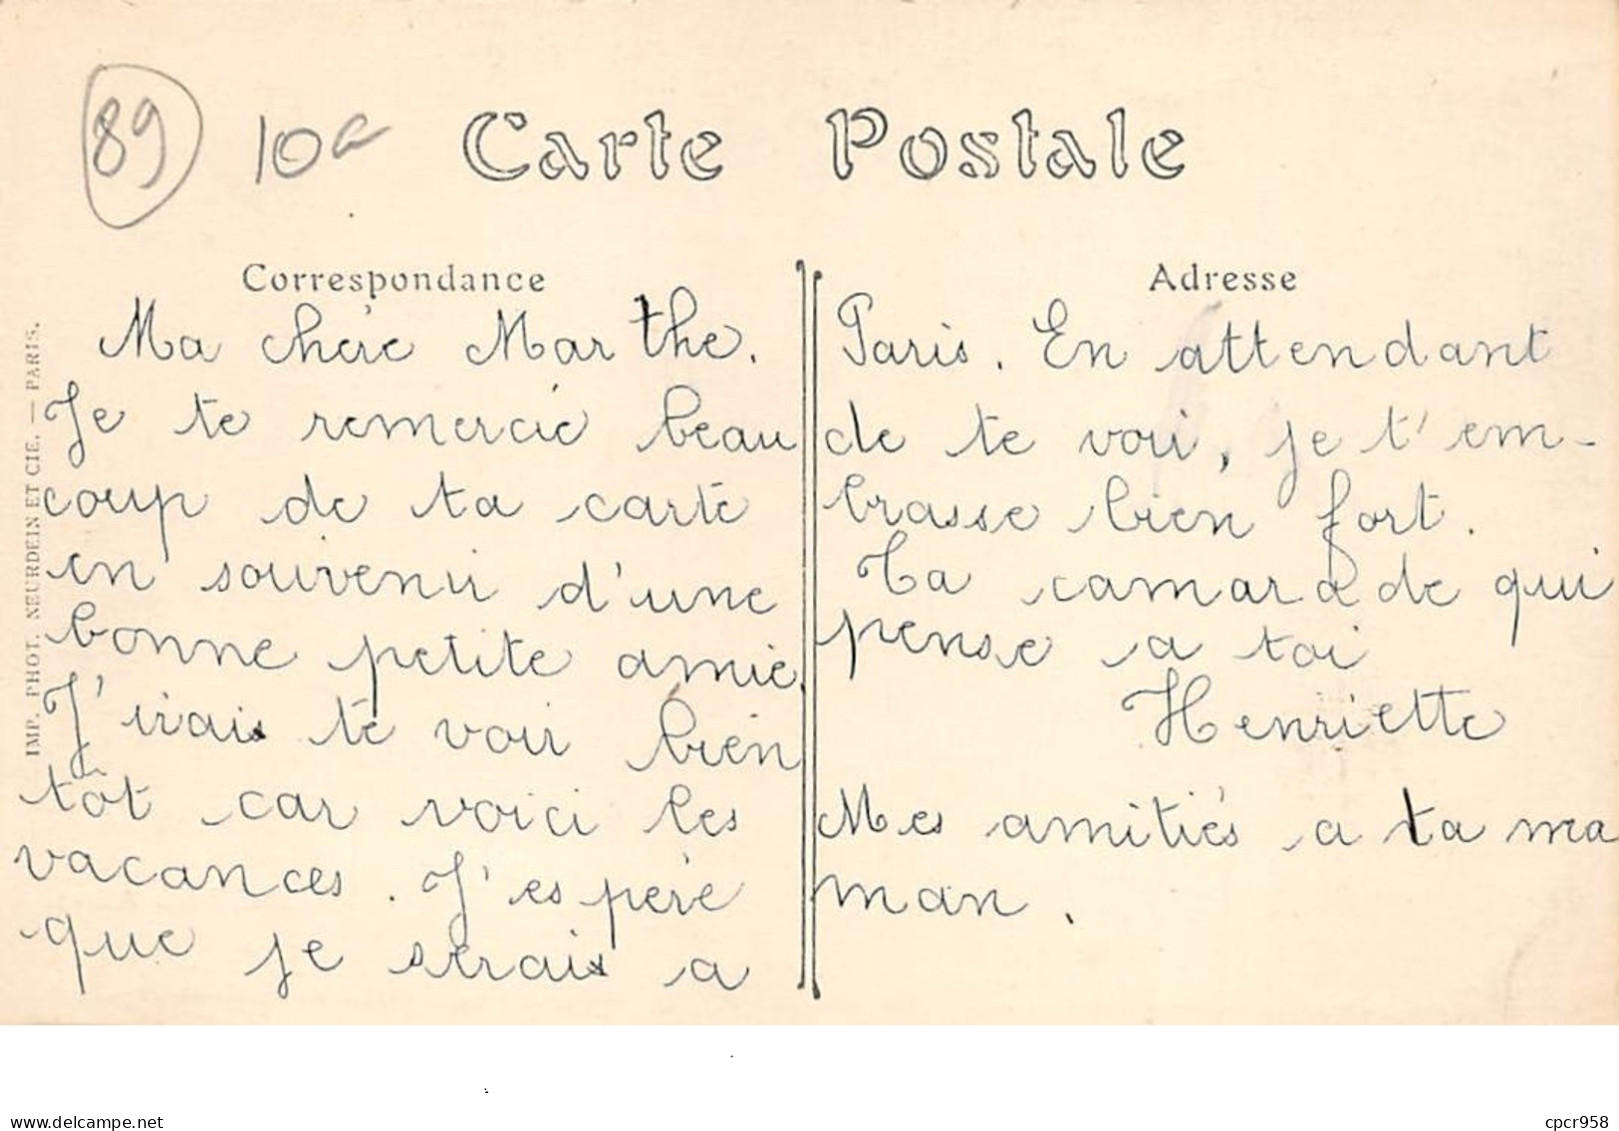 89 10a
Carte Postale
Correspondance
Ma chère Marthe.
Je te remercie beau
coup de ta carte
en souvenir d'une
bonne petite amie.
J'irais te voir bien
tôt car voici les
vacances. J'espère
que je serais a
Adresse
Paris. En attendant
de te voir, je t'em-
brasse bien fort.
Ta camarade qui
pense a toi
Henriette
Mes amitiés a ta ma
man.
IMP. PHOT. NEURDEIN ET CIE. — PARIS.
www.delcampe.net
cpcr958